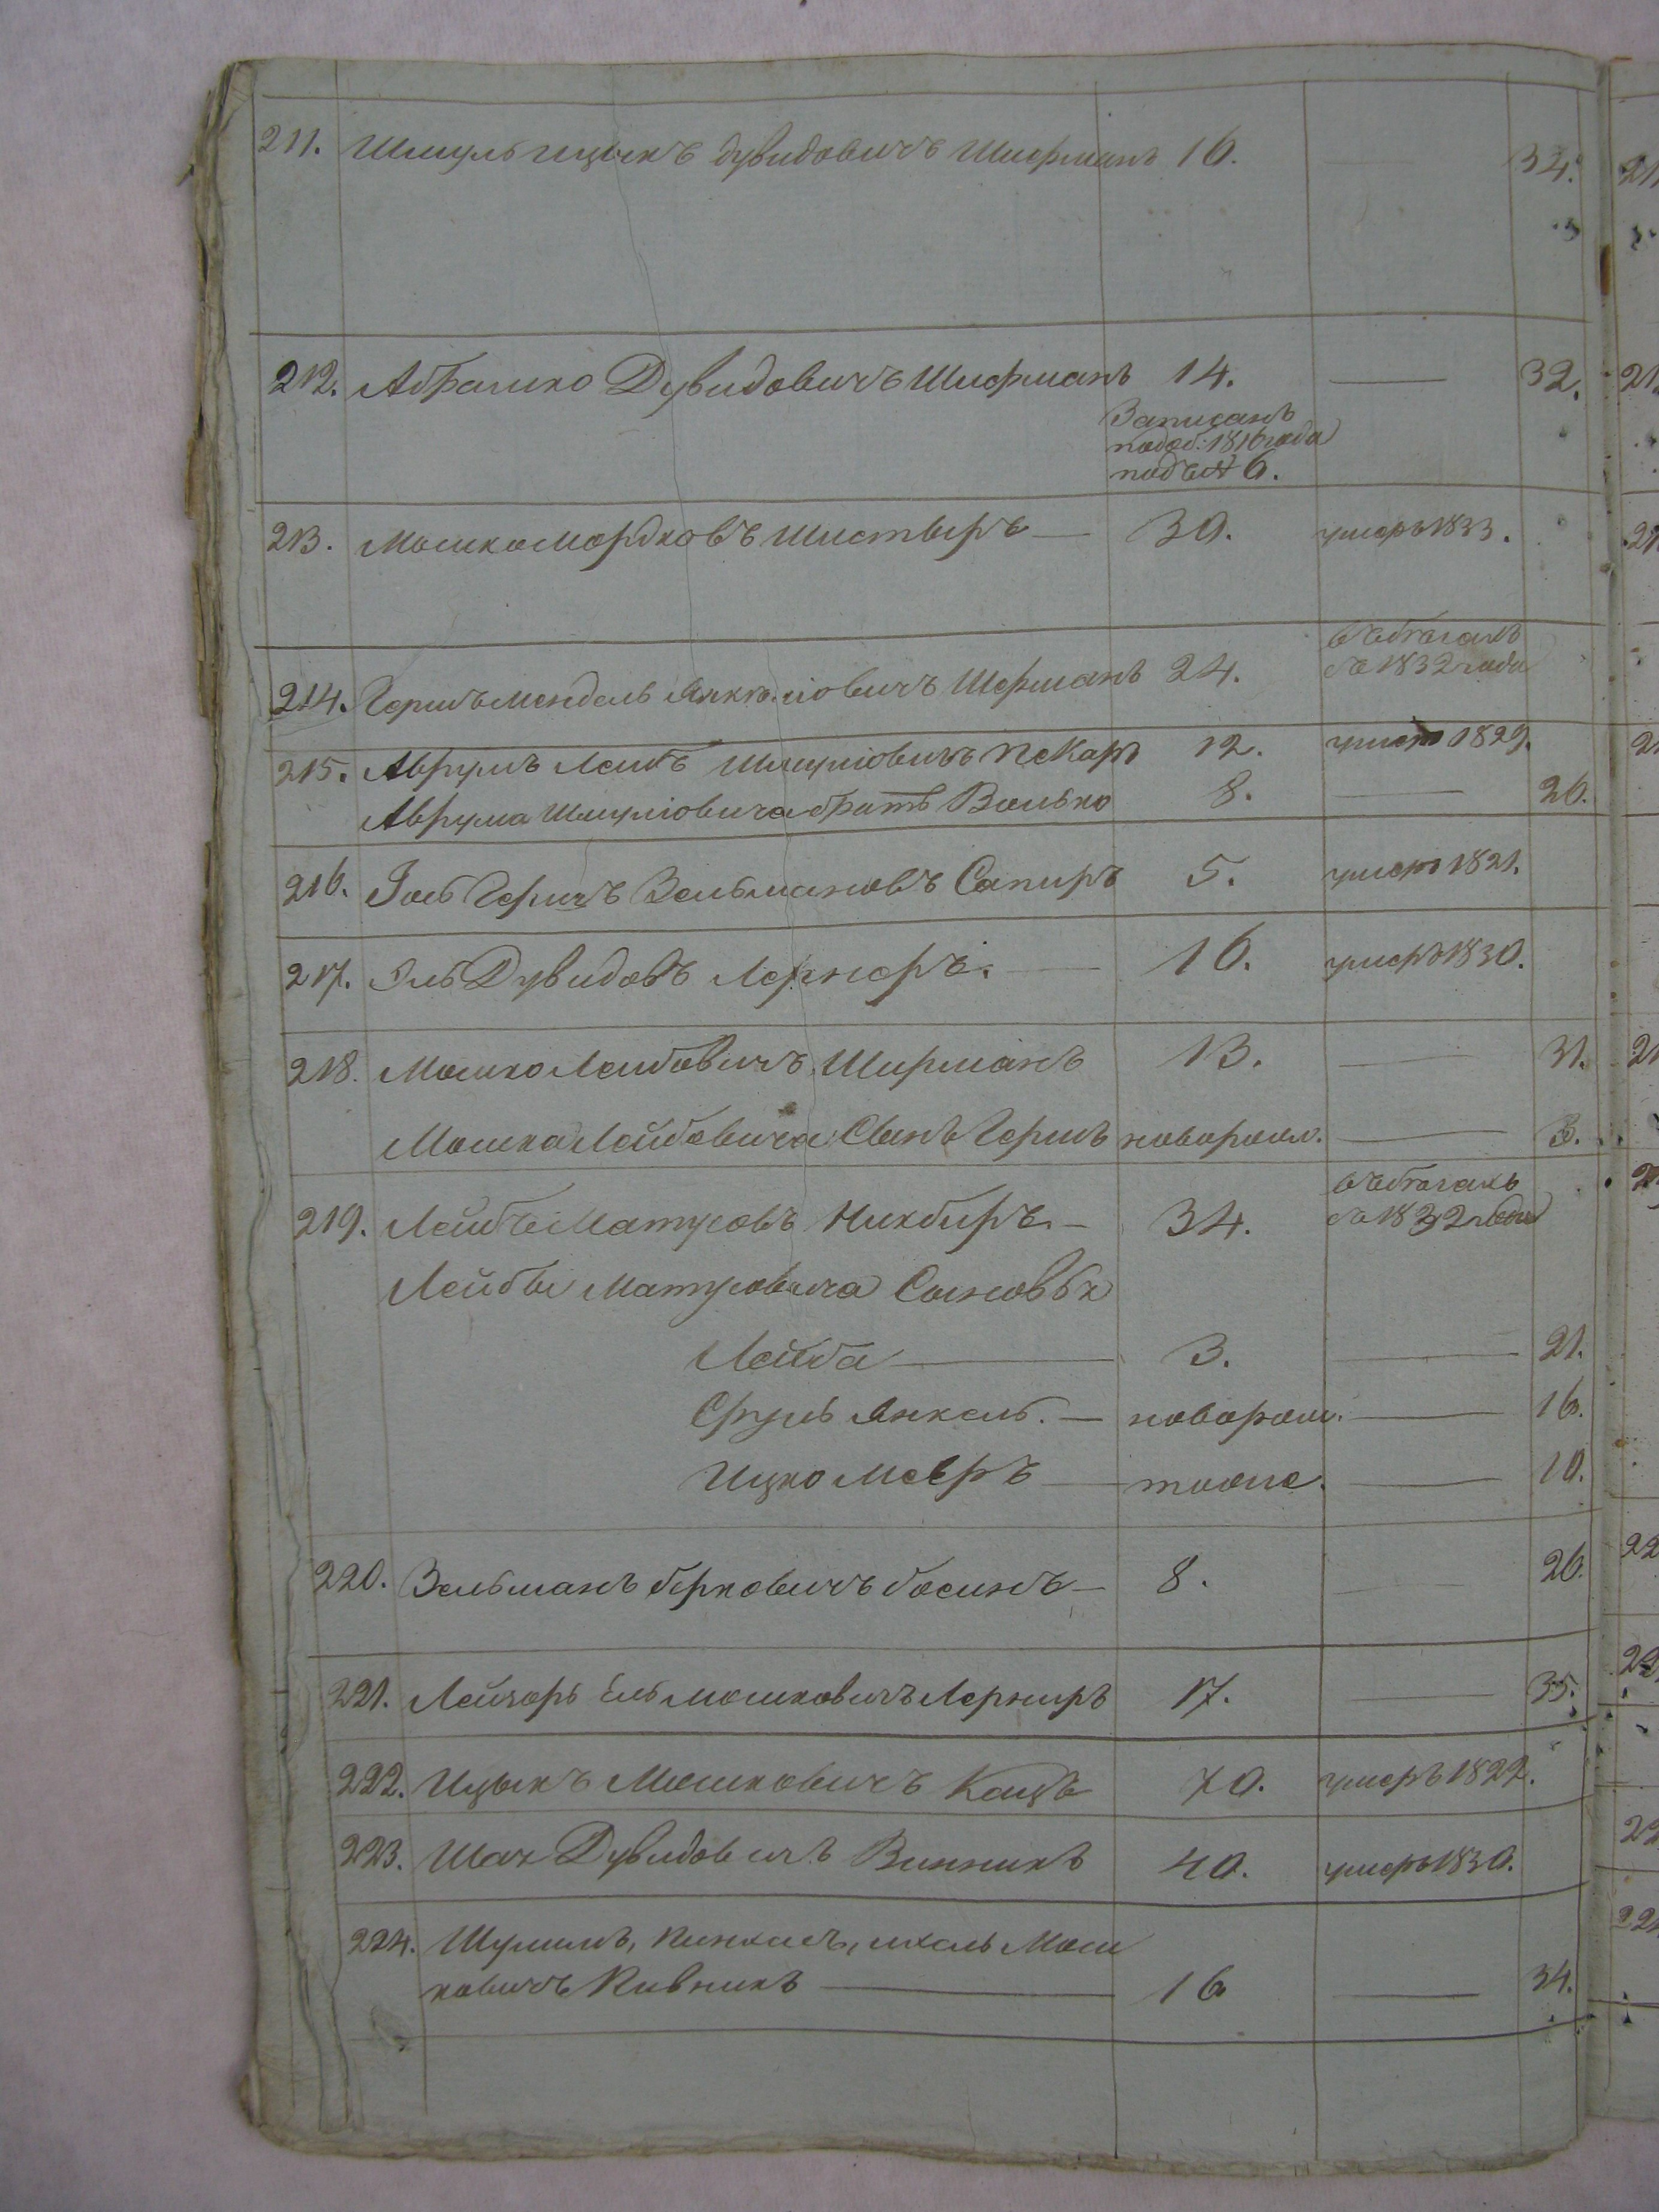 211. Шмуль ицыкъ дувидовичъ Шифманъ 16. — 34.
212. Абрамко Дувидовичъ Шифманъ 14. — 32.
Записанъ
подоб: 1816 года
подъ № 6.
213. Мошко мордковъ Шистыръ — 30. умеръ 1833.
въ бѣгахъ
съ 1832 года
214. Гершъ мендель Янкелiовичъ Шерманъ 24.
215. Аврумъ Леибъ Шмулiовичъ Пекаръ 12. умеръ 1829.
Аврума Шмулiовича братъ Волько 8. — 26.
216. Iось Гершъ Зельмановъ Сапиръ 5. умеръ 1821.
217. Эль Дувидовъ Лернеръ. — 16. умеръ 1830.
218. Мошко Леибовичъ Ширманъ 13. — 31.
Мошка Лейбовича Сынъ Гершъ новорожд. — 3.
въ бѣгахъ
219. Лейбъ Матусовъ — 34. съ 1832 года
Лейбы Матусовича Сыновья
Лейба — 3. — 21.
Сруль Янкель. — новорож. — 16.
Ицко Мееръ — тоже. — 10.
220. Зельманъ берковичъ босинъ — 8. — 26.
221. Лейзоръ Ель мошковичъ Лерниръ 17. — 35.
222. Ицыкъ Мошковичъ Кацъ 70. умеръ 1822.
223. Шая Дувидовичъ Винникъ 40. умеръ 1830.
224. Шулимъ, Пинхасъ, ихель Мош
ковичъ Пивникъ — 16 — 34.